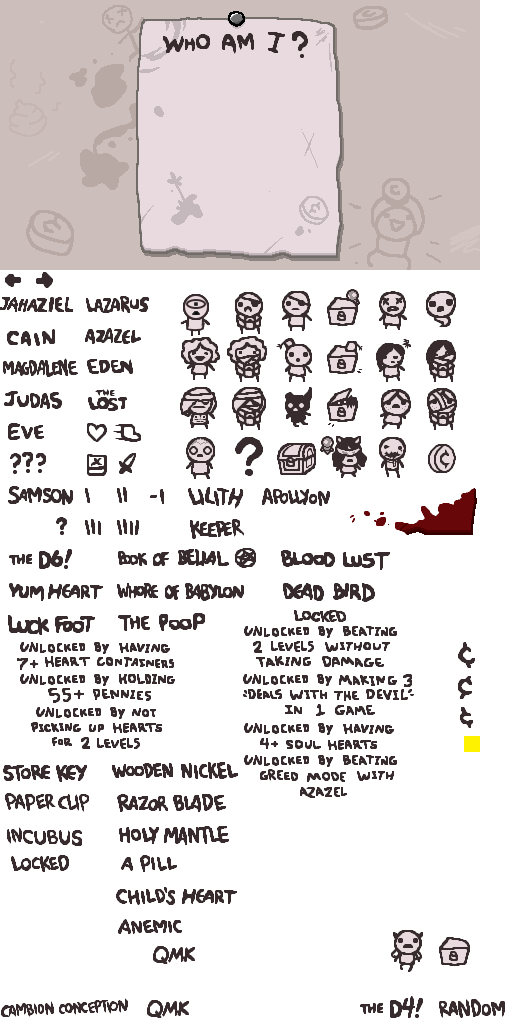 WHO AM I?
JAHAZIEL LAZARUS
CAIN AZAZEL
MAGDALENE EDEN
JUDAS THE LOST
EVE
???
?
SAMSON I II -I LILITH APOLLYON
? III IIII KEEPER
THE D6! BOOK OF BELIAL BLOOD LUST
YUM HEART WHORE OF BABYLON DEAD BIRD
LUCK FOOT THE POOP
LOCKED
UNLOCKED BY HAVING
7+ HEART CONTAINERS
UNLOCKED BY HOLDING
55+ PENNIES
UNLOCKED BY NOT
PICKING UP HEARTS
FOR 2 LEVELS
UNLOCKED BY BEATING
2 LEVELS WITHOUT
TAKING DAMAGE
UNLOCKED BY MAKING 3
"DEALS WITH THE DEVIL"
IN 1 GAME
UNLOCKED BY HAVING
4+ SOUL HEARTS
UNLOCKED BY BEATING
GREED MODE WITH
AZAZEL
¢
¢
¢
STORE KEY WOODEN NICKEL
PAPER CLIP RAZOR BLADE
INCUBUS HOLY MANTLE
LOCKED A PILL
CHILD'S HEART
ANEMIC
QMK
CAMBION CONCEPTION QMK THE D4! RANDOM